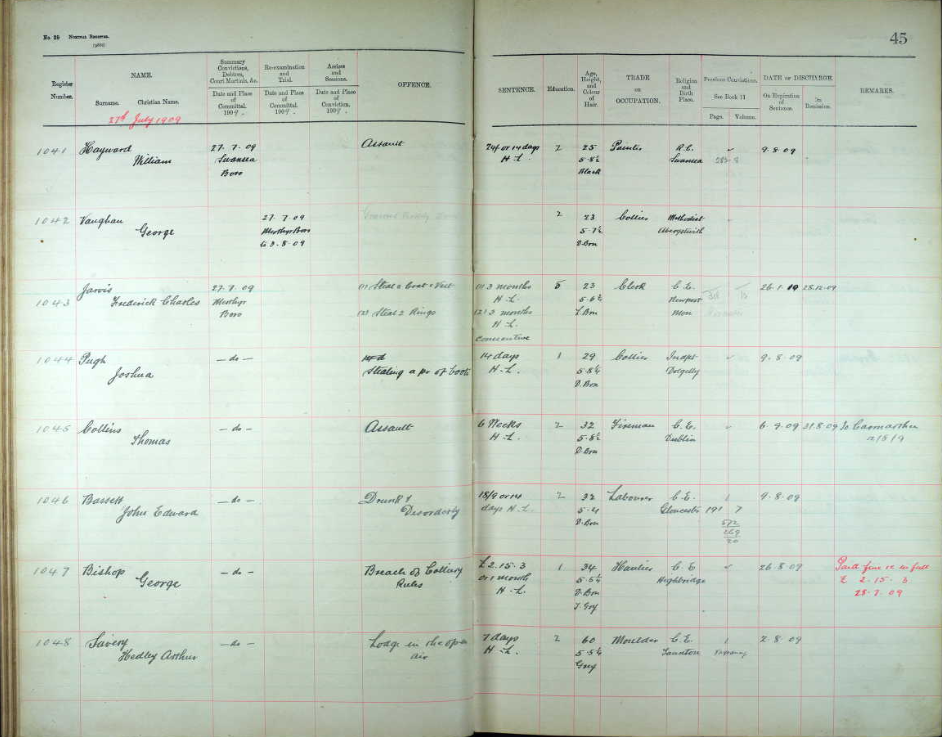 No. 29 NOMINAL REGISTER.
45
Register Number.
NAME.
Surname. Christian Name.
Summary Convictions, Debtors, Court Martials, &c.
Date and Place of Committal, 1909.
Re-examination and Trial.
Date and Place of Committal. 1909.
Assizes and Sessions.
Date and Place of Conviction, 1909.
OFFENCE.
SENTENCE.
Education.
Age, Height, and Colour of Hair.
TRADE OR OCCUPATION.
Religion and Birth Place.
Previous Convictions.
See Book 11
Page. Volume.
DATE OF DISCHARGE
On Expiration of Sentence.
On Remission.
REMARKS.
27th July 1909
1041 Hayward 27. 7. 09 Assault 24/ or 14 days 2 25 Painter R.C. 9. 8. 09
William Swansea H. L. 5. 8½ Swansea
Boro Black
1042 Vaughan 27. 7. 09 2 23 Collier Methodist
George Merthyr Boro 5. 7½ Aberystwith
3. 8. 09 D. Brn
Jarvis 27. 7. 09 (1) Steal a Coat & Vest (1) 3 months 23 Clerk C. E. 26. 1. 10 25.12.09
1043 Frederick Charles Merthyr H. L. 5. 6½ Newport
Boro (2) Steal 2 Rings (2) 3 months Mon
H. L.
Consecutive
1044 Pugh — do — 14 days 1 29 Collier Indpt 9. 8. 09
Joshua Stealing a pr of boots H. L. 5. 8½ Dolgelly
D. Brn
1045 Collins — do — Assault 6 Weeks 2 32 Fireman C. E. 6. 9. 09 31 8 09 To Carmarthen
Thomas H. L. 5. 8½ Dublin
D. Brn
1046 Bassett — do — Drunk & 18/9 or 14 2 32 Labourer C. E. 1 9. 8. 09
John Edward Disorderly days H. L. 5. 4 Gloucester 191 7
D. Brn
1047 Bishop — do — Breach of Colliery £ 2. 15. 3 1 34 Haulier C. E 26. 8. 09 Paid fine in full
George Rules or 1 month 5. 5½ Highbridge £ 2. 15. 3.
H. L. D. Brn 28. 7. 09
T. Gry
1048 Savery — do — Lodge in the open 7 days 2 60 Moulder C. E. 1 2. 8. 09
Hedley Arthur air H. L. Taunton
Grey